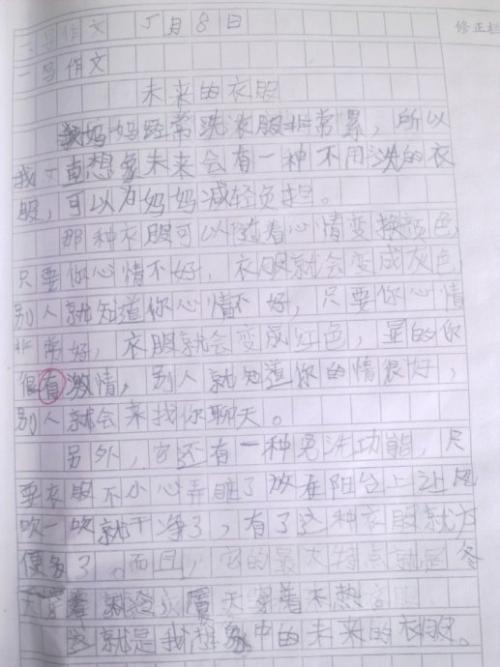 二号作文 5月8日
修正栏
一号作文
未来的衣服
我妈妈经常洗衣服非常累，所以
我一直想象未来会有一种不用洗的衣
服，可以为妈妈减轻负担。
那种衣服可以随着心情变换颜色
只要你心情不好，衣服就会变成灰色，
别人就知道你心情不好，只要你心情
非常好，衣服就会变成红色，显的你
很有激情，别人就知道你的情很好，
别人就会来找你聊天。
另外，它还有一种免洗功能，只
要衣服不小心弄脏了放在阳台上让风
吹一吹就干净了，有了这种衣服就方
便多了。而且，它的最大特点就是冬
天夏天穿着不热。
这就是我想象中的未来的衣服。